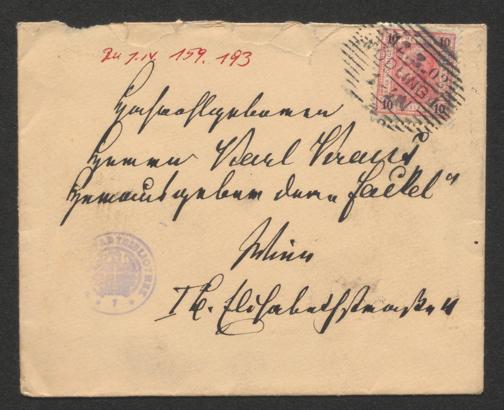 Zu I.N. 159.193
10 10
10 10
Hochwohlgeboren
Herrn Karl Kraus
Herausgeber der „Fackel"
Wien
Elisabethstraße 4